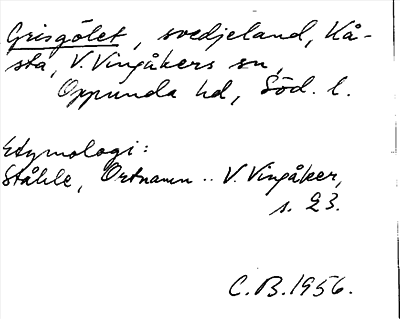 Grisgölet, svedjeland, Kå-
sta, V. Vingåkers sn,
Oppunda hd, Söd. l.
Etymologi:
Ståhle, Ortnamn .. V. Vingåker,
s. 23.
C.B. 1956.